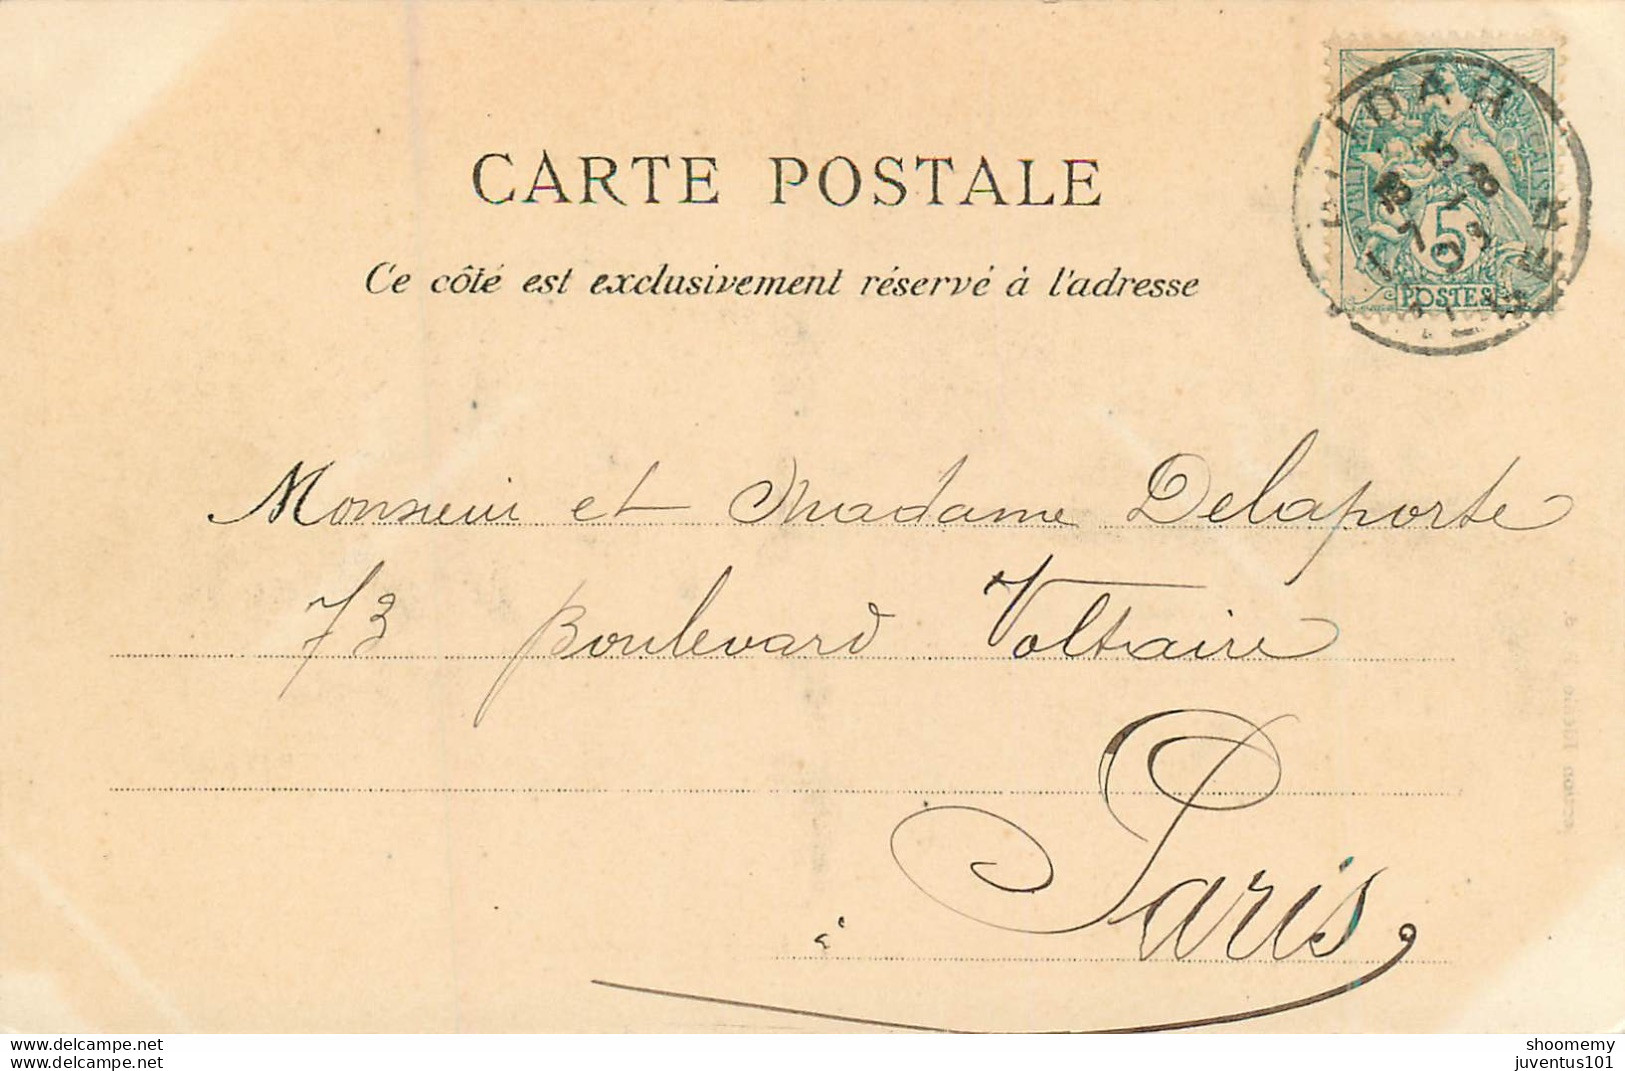 CARTE POSTALE
Ce côté est exclusivement réservé à l'adresse
5
POSTES
Monsieur et Madame Delaporte
73 Boulevard Voltaire
à
Paris
www.delcampe.net
www.delcampe.net
shoomemy
juventus101